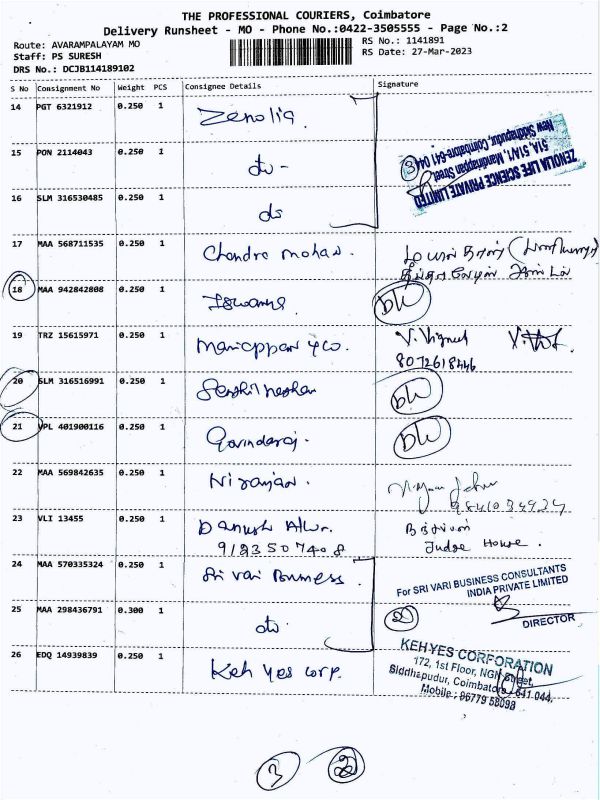 THE PROFESSIONAL COURIERS, Coimbatore
Delivery Runsheet - MO - Phone No.:0422-3505555 - Page No.:2
Route: AVARAMPALAYAM MO
RS No.: 1141891
Staff: PS SURESH
RS Date: 27-Mar-2023
DRS No.: DCJB114189102
S No Consignment No Weight PCS Consignee Details Signature
14 PGT 6321912 0.250 1 Zenolia
ZENOLIA LIFE SCIENCE PRIVATE LIMITED
51A, 51A/1, Marudhappan Street,
New Siddhapudur, Coimbatore-641 044
3
15 PON 2114043 0.250 1 do -
16 SLM 316530485 0.250 1 do
17 MAA 568711535 0.250 1 Chandra mohan.
18 MAA 942842808 0.250 1
19 TRZ 15615971 0.250 1 Mariappan & Co. V. Vignesh
8072618446
20 SLM 316516991 0.250 1
21 VPL 401900116 0.250 1 Govindaraj.
22 MAA 569842635 0.250 1 Niranjan.
23 VLI 13455 0.250 1 Danush
9123507408 Judge House.
24 MAA 570335324 0.250 1 Sri Vari Business
For SRI VARI BUSINESS CONSULTANTS
INDIA PRIVATE LIMITED
DIRECTOR
25 MAA 298436791 0.300 1 do
2
26 EDQ 14939839 0.250 1 Keh yes corp.
KEHYES CORPORATION
172, 1st Floor, NGN Street,
Siddhapudur, Coimbatore - 641 044.
Mobile : 96779 58098
3 2